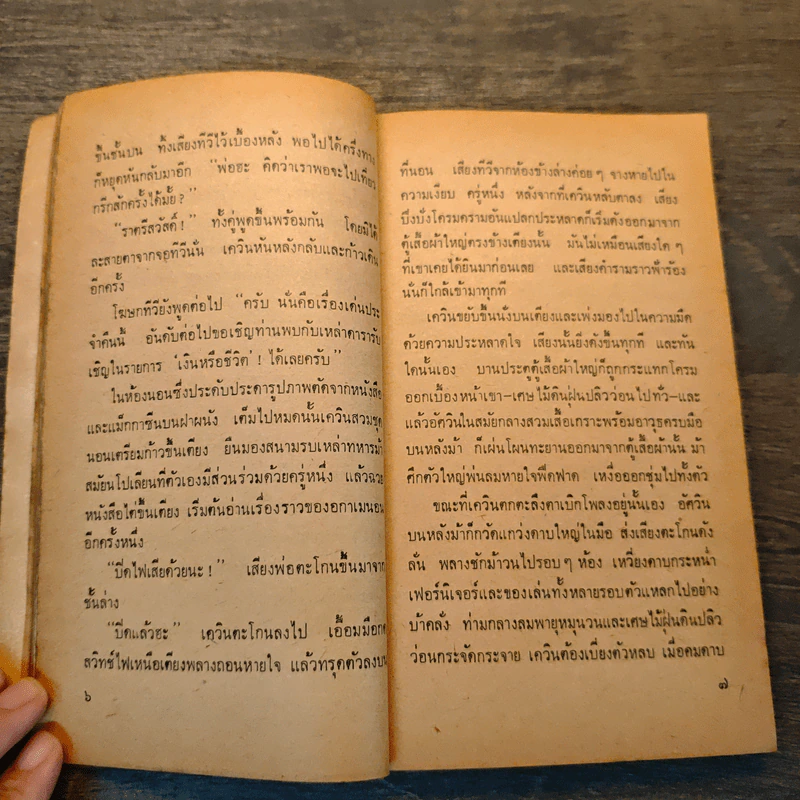 ขึ้นชั้นบน ทิ้งเสียงทีวีไว้เบื้องหลัง พอไปได้ครึ่งทาง
ก็หยุดหันกลับมาอีก “พ่อฮะ คิดว่าเราพอจะไปเที่ยว
กรีกสักครั้งได้มั้ย?”
“ราตรีสวัสดิ์!” ทั้งคู่พูดขึ้นพร้อมกัน โดยมิได้
ละสายตาจากจอทีวีนั่น เควินหันหลังกลับและก้าวเดิน
อีกครั้ง
โฆษกทีวียังพูดต่อไป “ครับ นั่นคือเรื่องเด่นประ
จำคืนนี้ อันดับต่อไปขอเชิญท่านพบกับเหล่าดารารับ
เชิญในรายการ ‘เงินหรือชีวิต’! ได้เลยครับ”
ในห้องนอนซึ่งประดับประดารูปภาพตัดจากหนังสือ
และแม็กกาซีนบนฝาผนัง เต็มไปหมดนั้นเควินสวมชุด
นอนเตรียมก้าวขึ้นเตียง ยืนมองสนามรบเหล่าทหารม้า
สมัยนโปเลียนที่ตัวเองมีส่วนร่วมด้วยครู่หนึ่ง แล้วฉวย
หนังสือไต่ขึ้นเตียง เริ่มต้นอ่านเรื่องราวของอกาเมนอน
อีกครั้งหนึ่ง
“ปิดไฟเสียด้วยนะ!” เสียงพ่อตะโกนขึ้นมาจาก
ชั้นล่าง
“ปิดแล้วฮะ” เควินตะโกนลงไป เอื้อมมือกด
สวิทช์ไฟเหนือเตียงพลางถอนหายใจ แล้วทรุดตัวลงบน
๖
ที่นอน เสียงทีวีจากห้องข้างล่างค่อยๆ จางหายไปใน
ความเงียบ ครู่หนึ่ง หลังจากที่เควินหลับตาลง เสียง
ปึงปังโครมครามอันแปลกประหลาดก็เริ่มดังออกมาจาก
ตู้เสื้อผ้าใหญ่ตรงข้างเตียงนั้น มันไม่เหมือนเสียงใดๆ
ที่เขาเคยได้ยินมาก่อนเลย และเสียงคำรามราวฟ้าร้อง
นั่นก็ใกล้เข้ามาทุกที
เควินขยับขึ้นนั่งบนเตียงและเพ่งมองไปในความมืด
ด้วยความประหลาดใจ เสียงนั้นยิ่งดังขึ้นทุกที และทัน
ใดนั้นเอง บานประตูตู้เสื้อผ้าใหญ่ก็ถูกกระแทกโครม
ออกเบื้องหน้าเขา—เศษไม้ดินฝุ่นปลิวว่อนไปทั่ว—และ
แล้วอัศวินในสมัยกลางสวมเสื้อเกราะพร้อมอาวุธครบมือ
บนหลังม้า ก็เผ่นโผนทะยานออกมาจากตู้เสื้อผ้านั้น ม้า
ศึกตัวใหญ่พ่นลมหายใจฟืดฟาด เหงื่อออกชุ่มไปทั้งตัว
ขณะที่เควินตกตะลึงตาเบิกโพลงอยู่นั้นเอง อัศวิน
บนหลังม้าก็กวัดแกว่งดาบใหญ่ในมือ ส่งเสียงตะโกนดัง
ลั่น พลางชักม้าวนไปรอบๆ ห้อง เหวี่ยงดาบกระหน่ำ
เฟอร์นิเจอร์และของเล่นทั้งหลายรอบตัวแหลกไปอย่าง
บ้าคลั่ง ท่ามกลางลมพายุหมุนวนและเศษไม้ฝุ่นดินปลิว
ว่อนกระจัดกระจาย เควินต้องเบี่ยงตัวหลบ เมื่อคมดาบ
๗